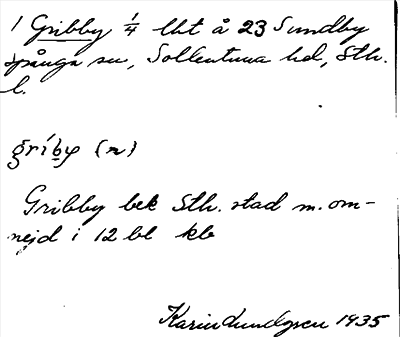 1 Gribby 1/4 lht å 23 Sundby
Spånga sn, Sollentuna hd, Sth.
l.
gríby (n)
Gribby bek Sth. stad m. om-
nejd i 12 bl kb
Karin Lundgren 1935